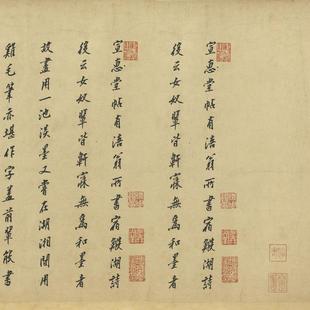 宣惠堂帖有涪翁所書宿湖詩
後云女奴輩皆鼾寐無為和墨者
宣惠堂帖有涪翁所書宿湖詩
後云女奴輩皆鼾寐無為和墨者
故盡用一池淡墨又嘗在湖湘間用
雞毛筆亦堪作字蓋前輩書